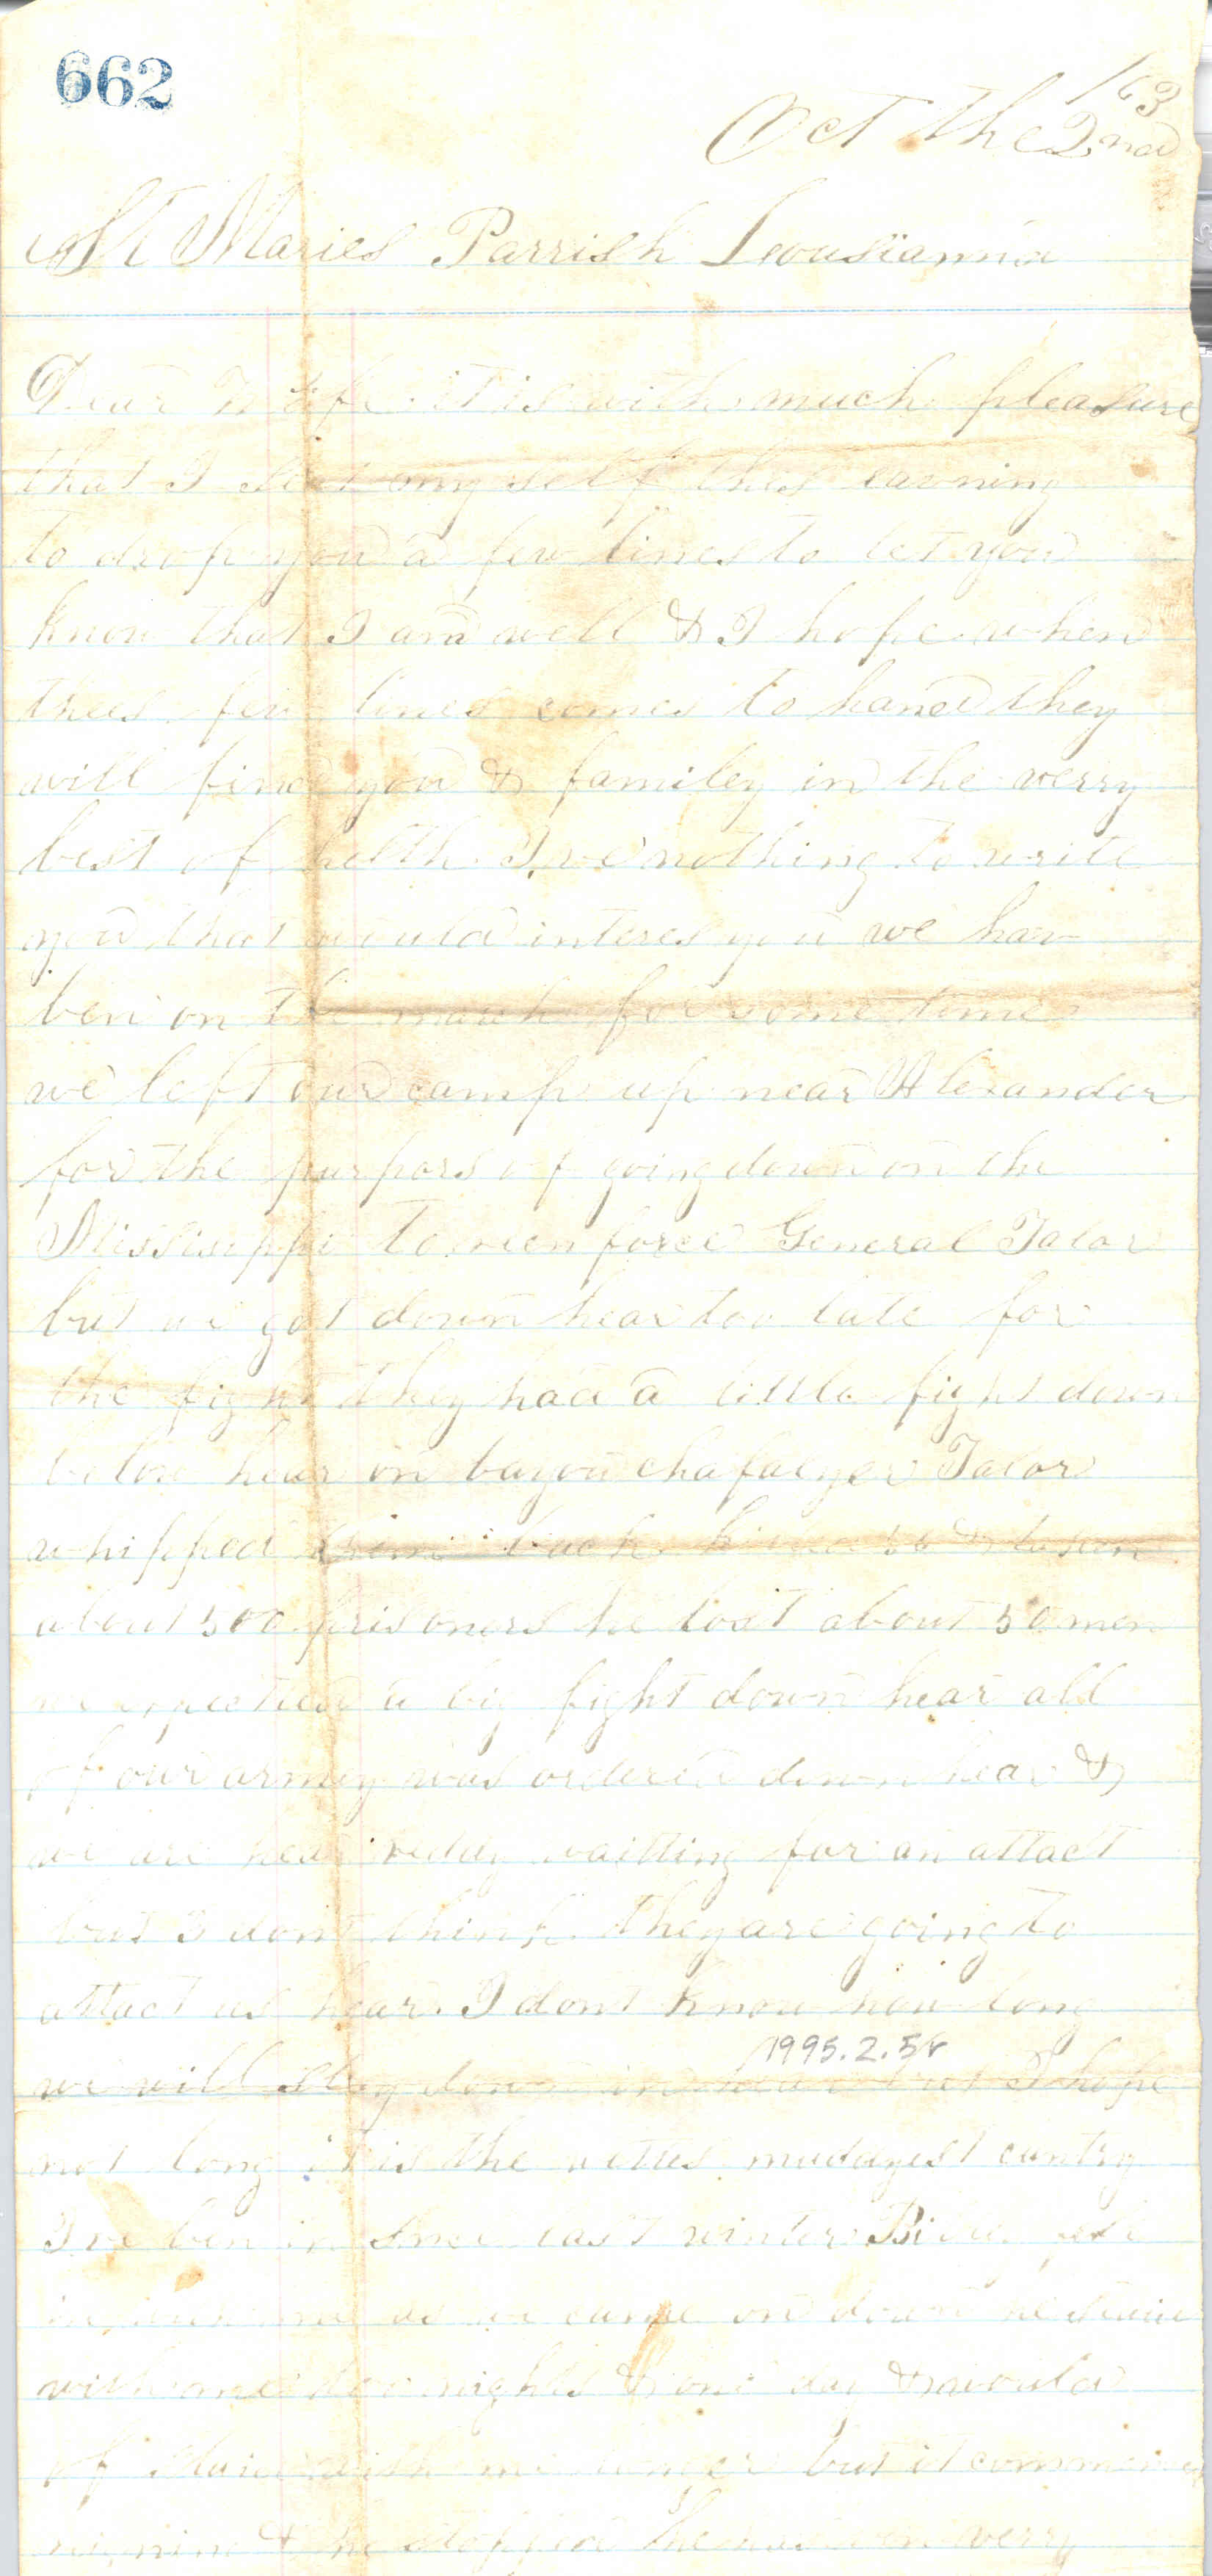 662
/63
Oct the 2nd
St Maries Parrish Lousianna
Dear Wife it is with much pleasure
that I seat my self this eavning
to drop you a few lines to let you
know that I am well & I hope when
thees few lines comes to hand they
will find you & familey in the verry
best of helth I ve nothing to write
you that would interes you we hav
ben on the march for some time
we left our camp up near Alexander
for the purpors of going down on the
Mississippi to reen force General Talor
but we got down hear too late for
the fight they had a little fight down
below hear on bayou chafalyer Talor
whipped them back &
about 500 prisoners he lost about 50 men
we expected a big fight down hear all
of our armey was ordered down hear &
we are hear redey waitting for an attact
but I dont think they are going to
attact us hear. I dont know how long
1995.2.58
we will stay down hear but I hope
not long it is the muddyest cuntry
I ve ben in since last winter
me as we came on down he staid
with me two nights & one day & would
of staid with me longer but it commenced
& he stopped verry